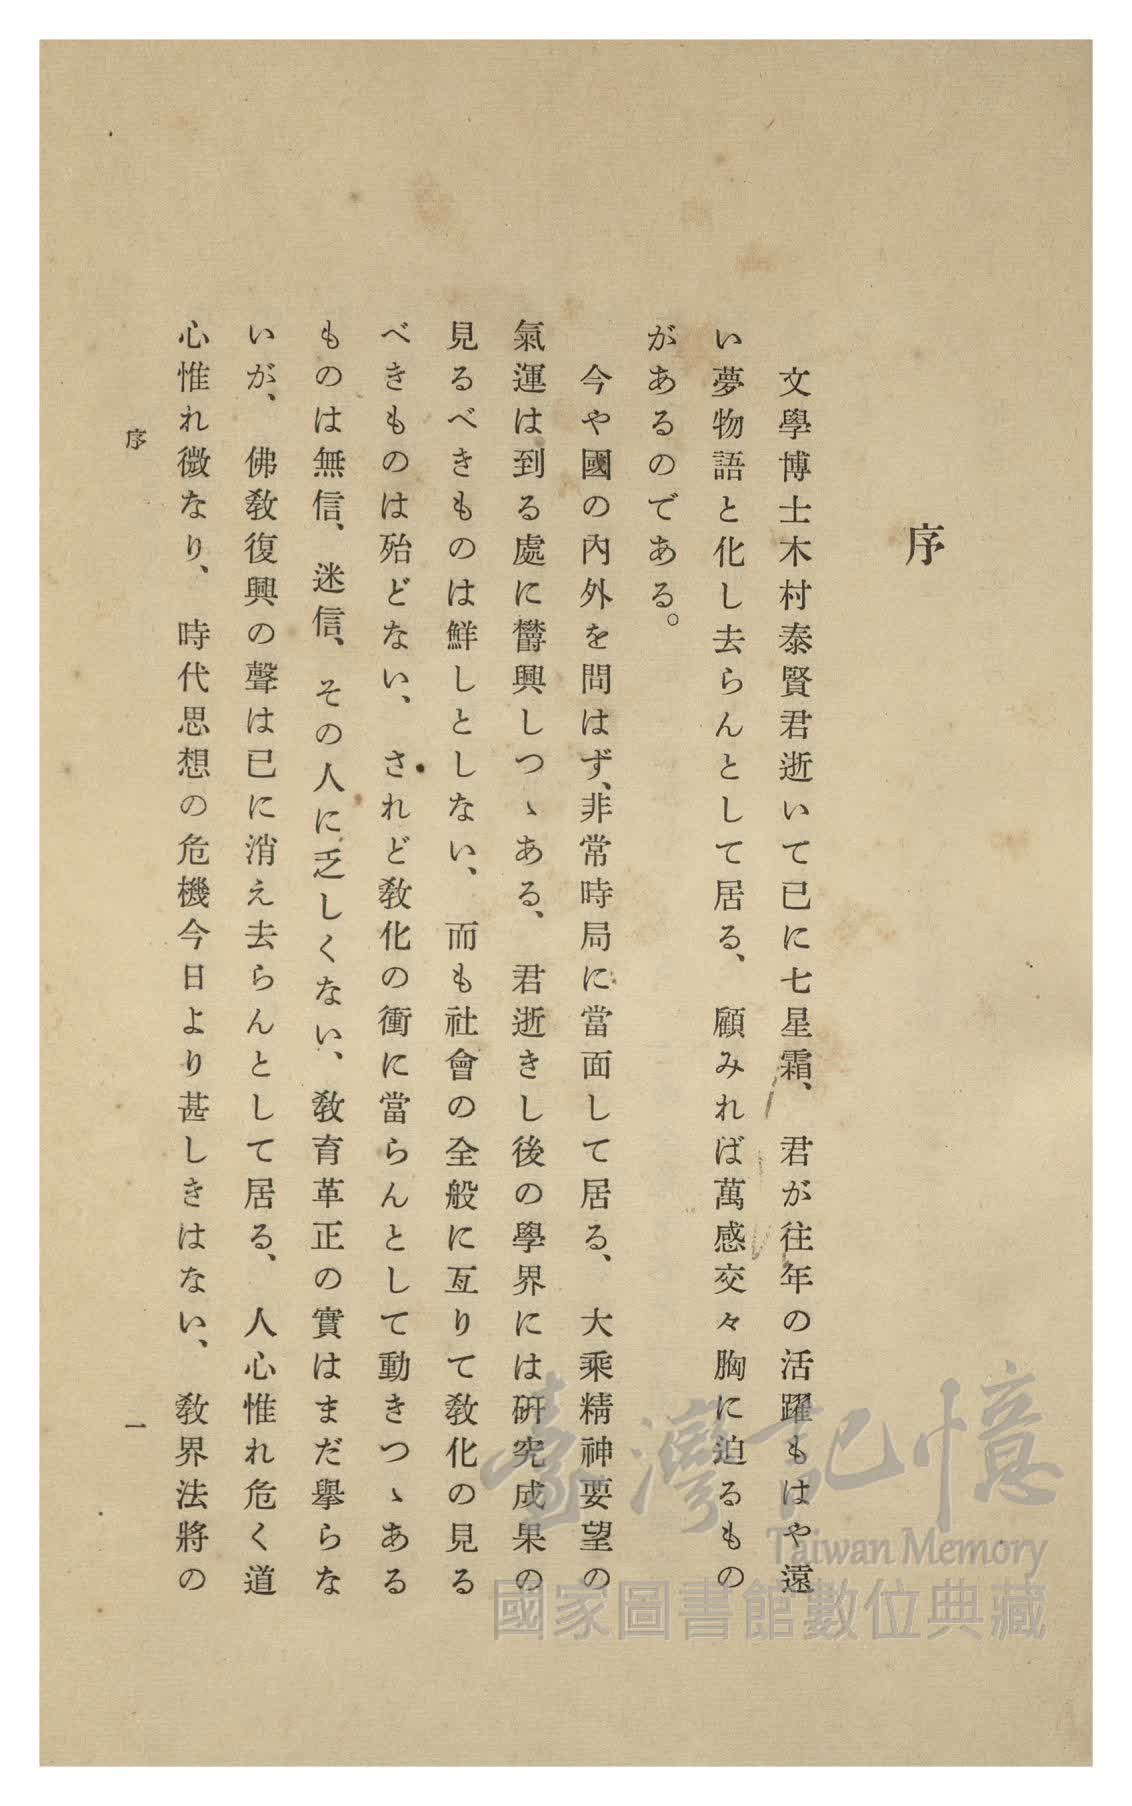 序
文學博士木村泰賢君逝いて已に七星霜、君が往年の活躍もはや遠
い夢物語と化し去らんとして居る、顧みれば萬感交々胸に迫るもの
があるのである。
今や國の內外を問はず、非常時局に當面して居る、大乘精神要望の
氣運は到る處に欝興しつゝある、君逝きし後の學界には硏究成果の
見るべきものは鮮しとしない、而も社會の全般に亙りて敎化の見る
べきものは殆どない、されど敎化の衝に當らんとして動きつゝある
ものは無信、迷信、その人に乏しくない、敎育革正の實はまだ擧らな
いが、佛敎復興の聲は已に消え去らんとして居る、人心惟れ危く道
心惟れ微なり、時代思想の危機今日より甚しきはない、敎界法將の
序
一
臺灣記憶
Taiwan Memory
國家圖書館數位典藏